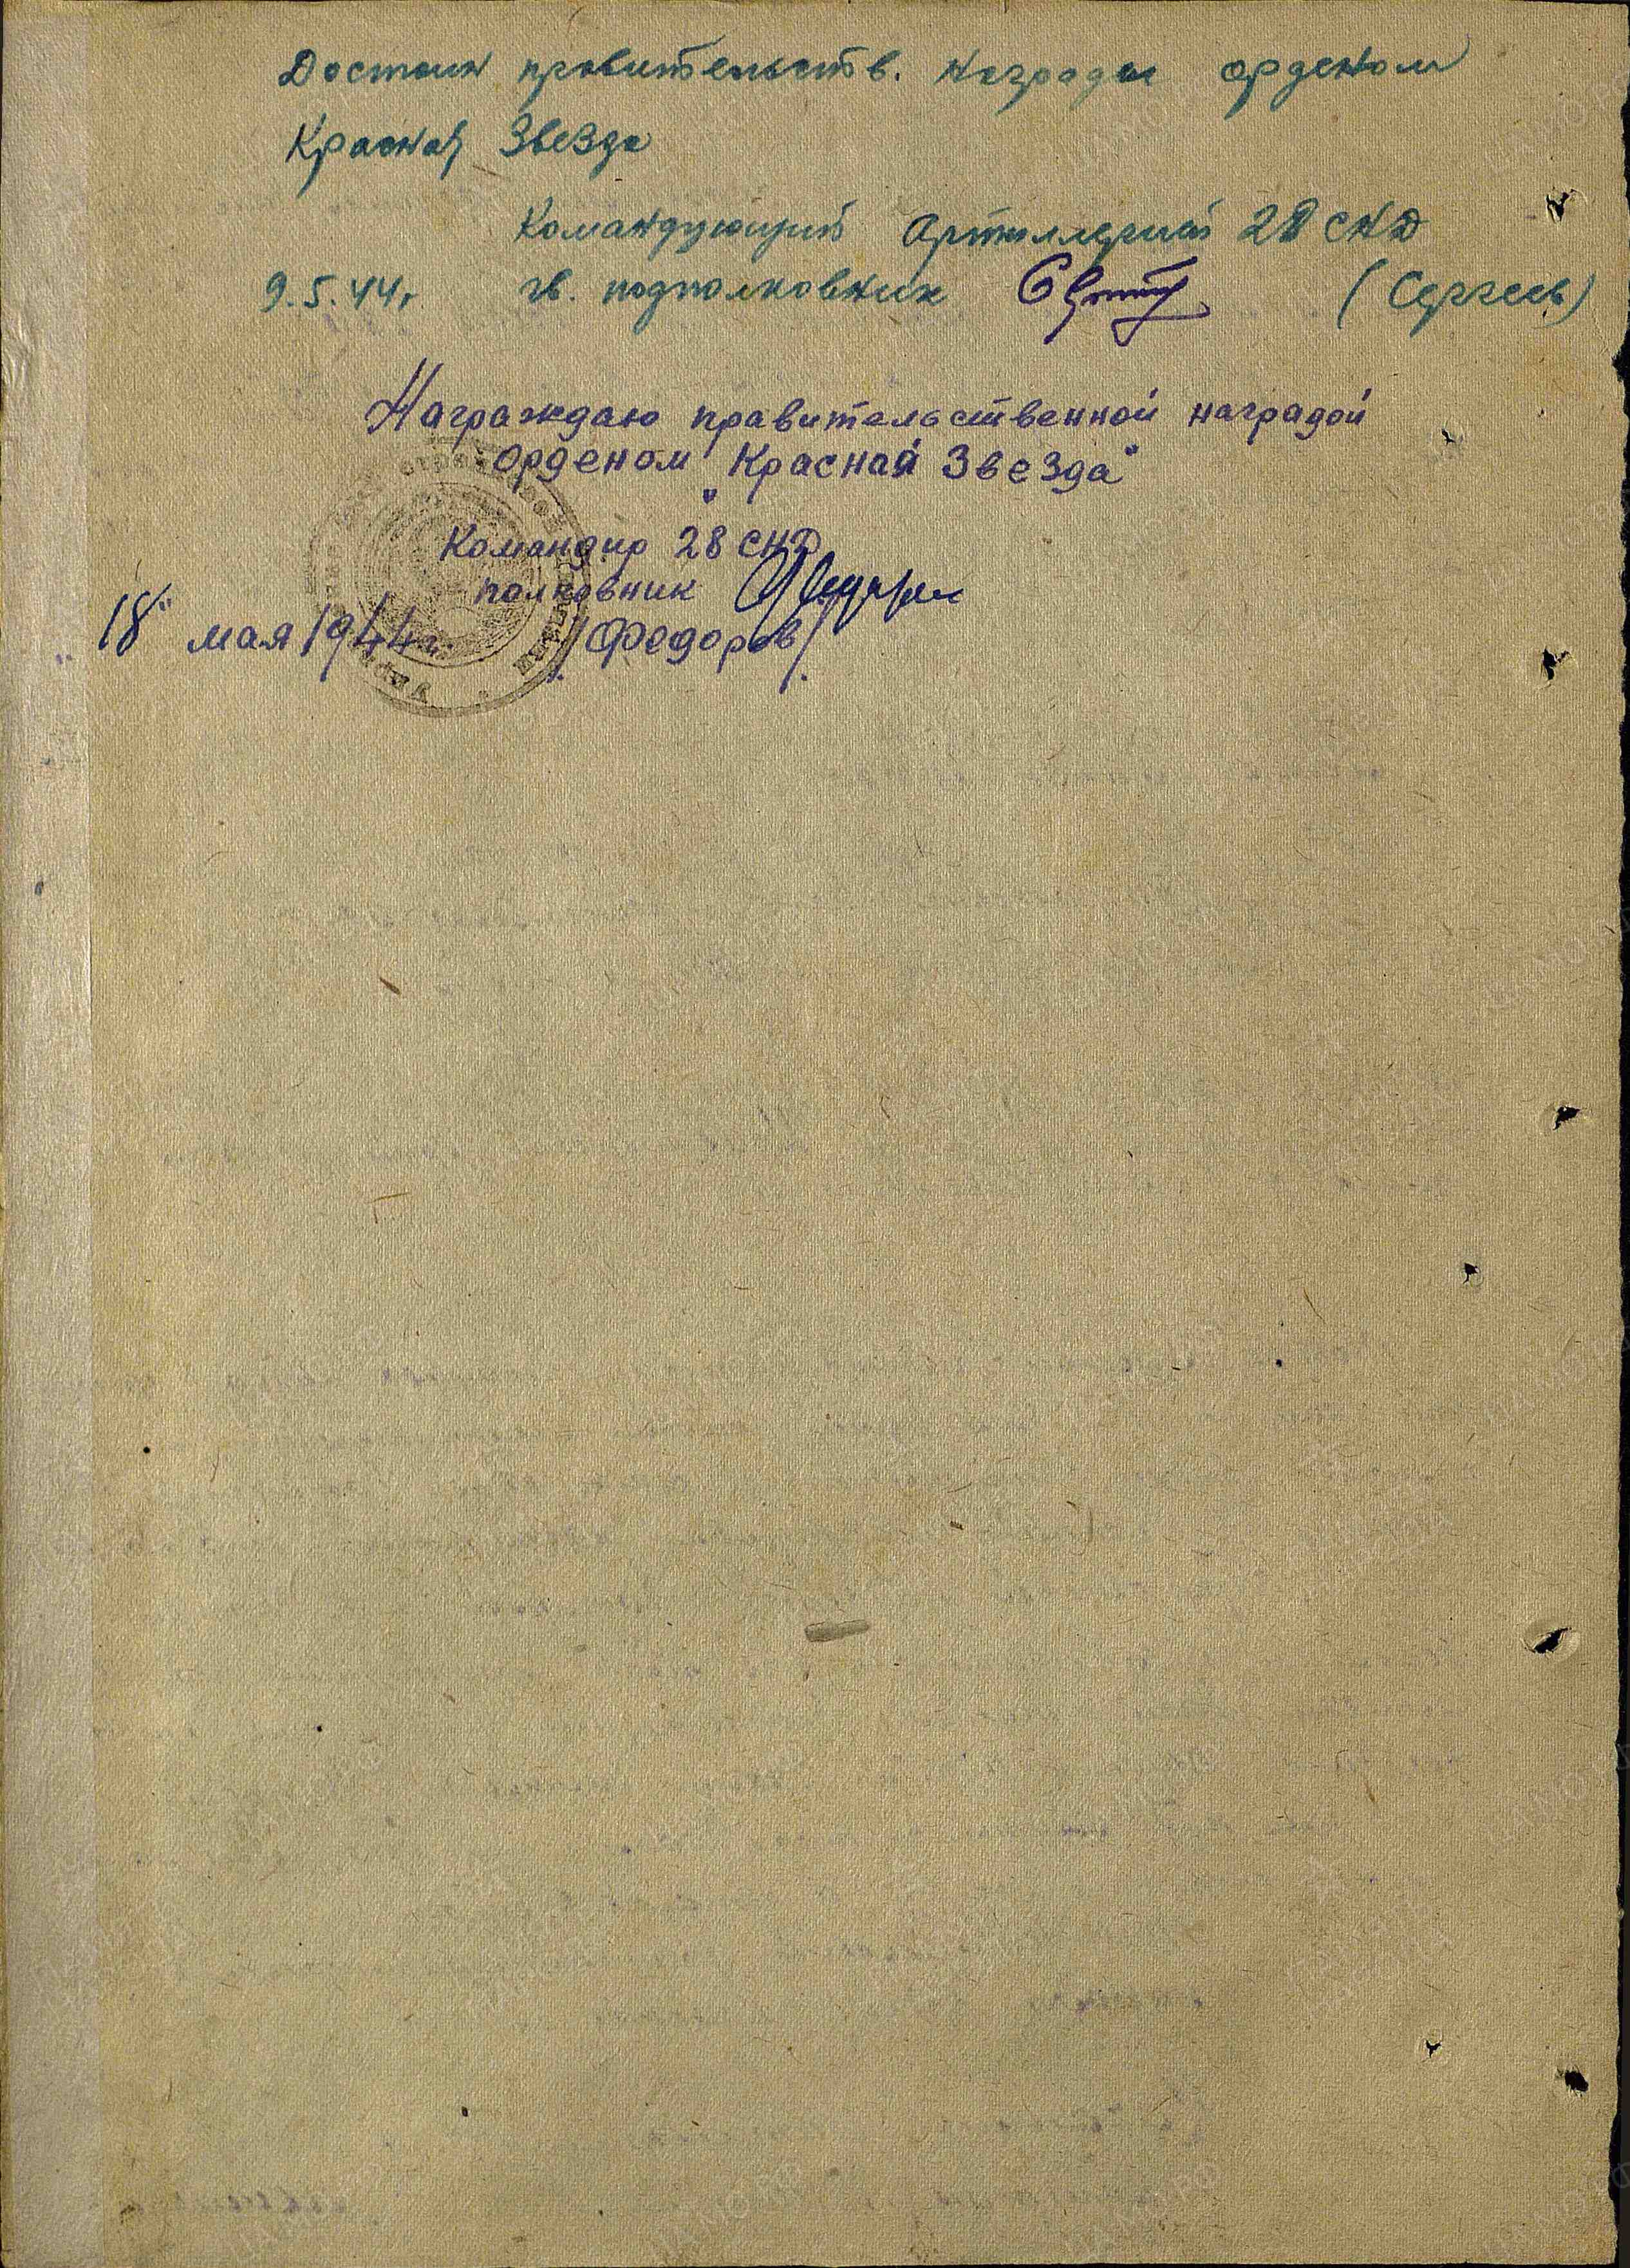 Достоин правительств. награды орденом
Красная Звезда
Командующий Артиллерией 28 СКД
9.5.44г гв. подполковник (Сергеев)
Награждаю правительственной наградой
орденом "Красная Звезда"
Командир 28 СКД
полковник
"18" мая 1944 г. /Федоров/